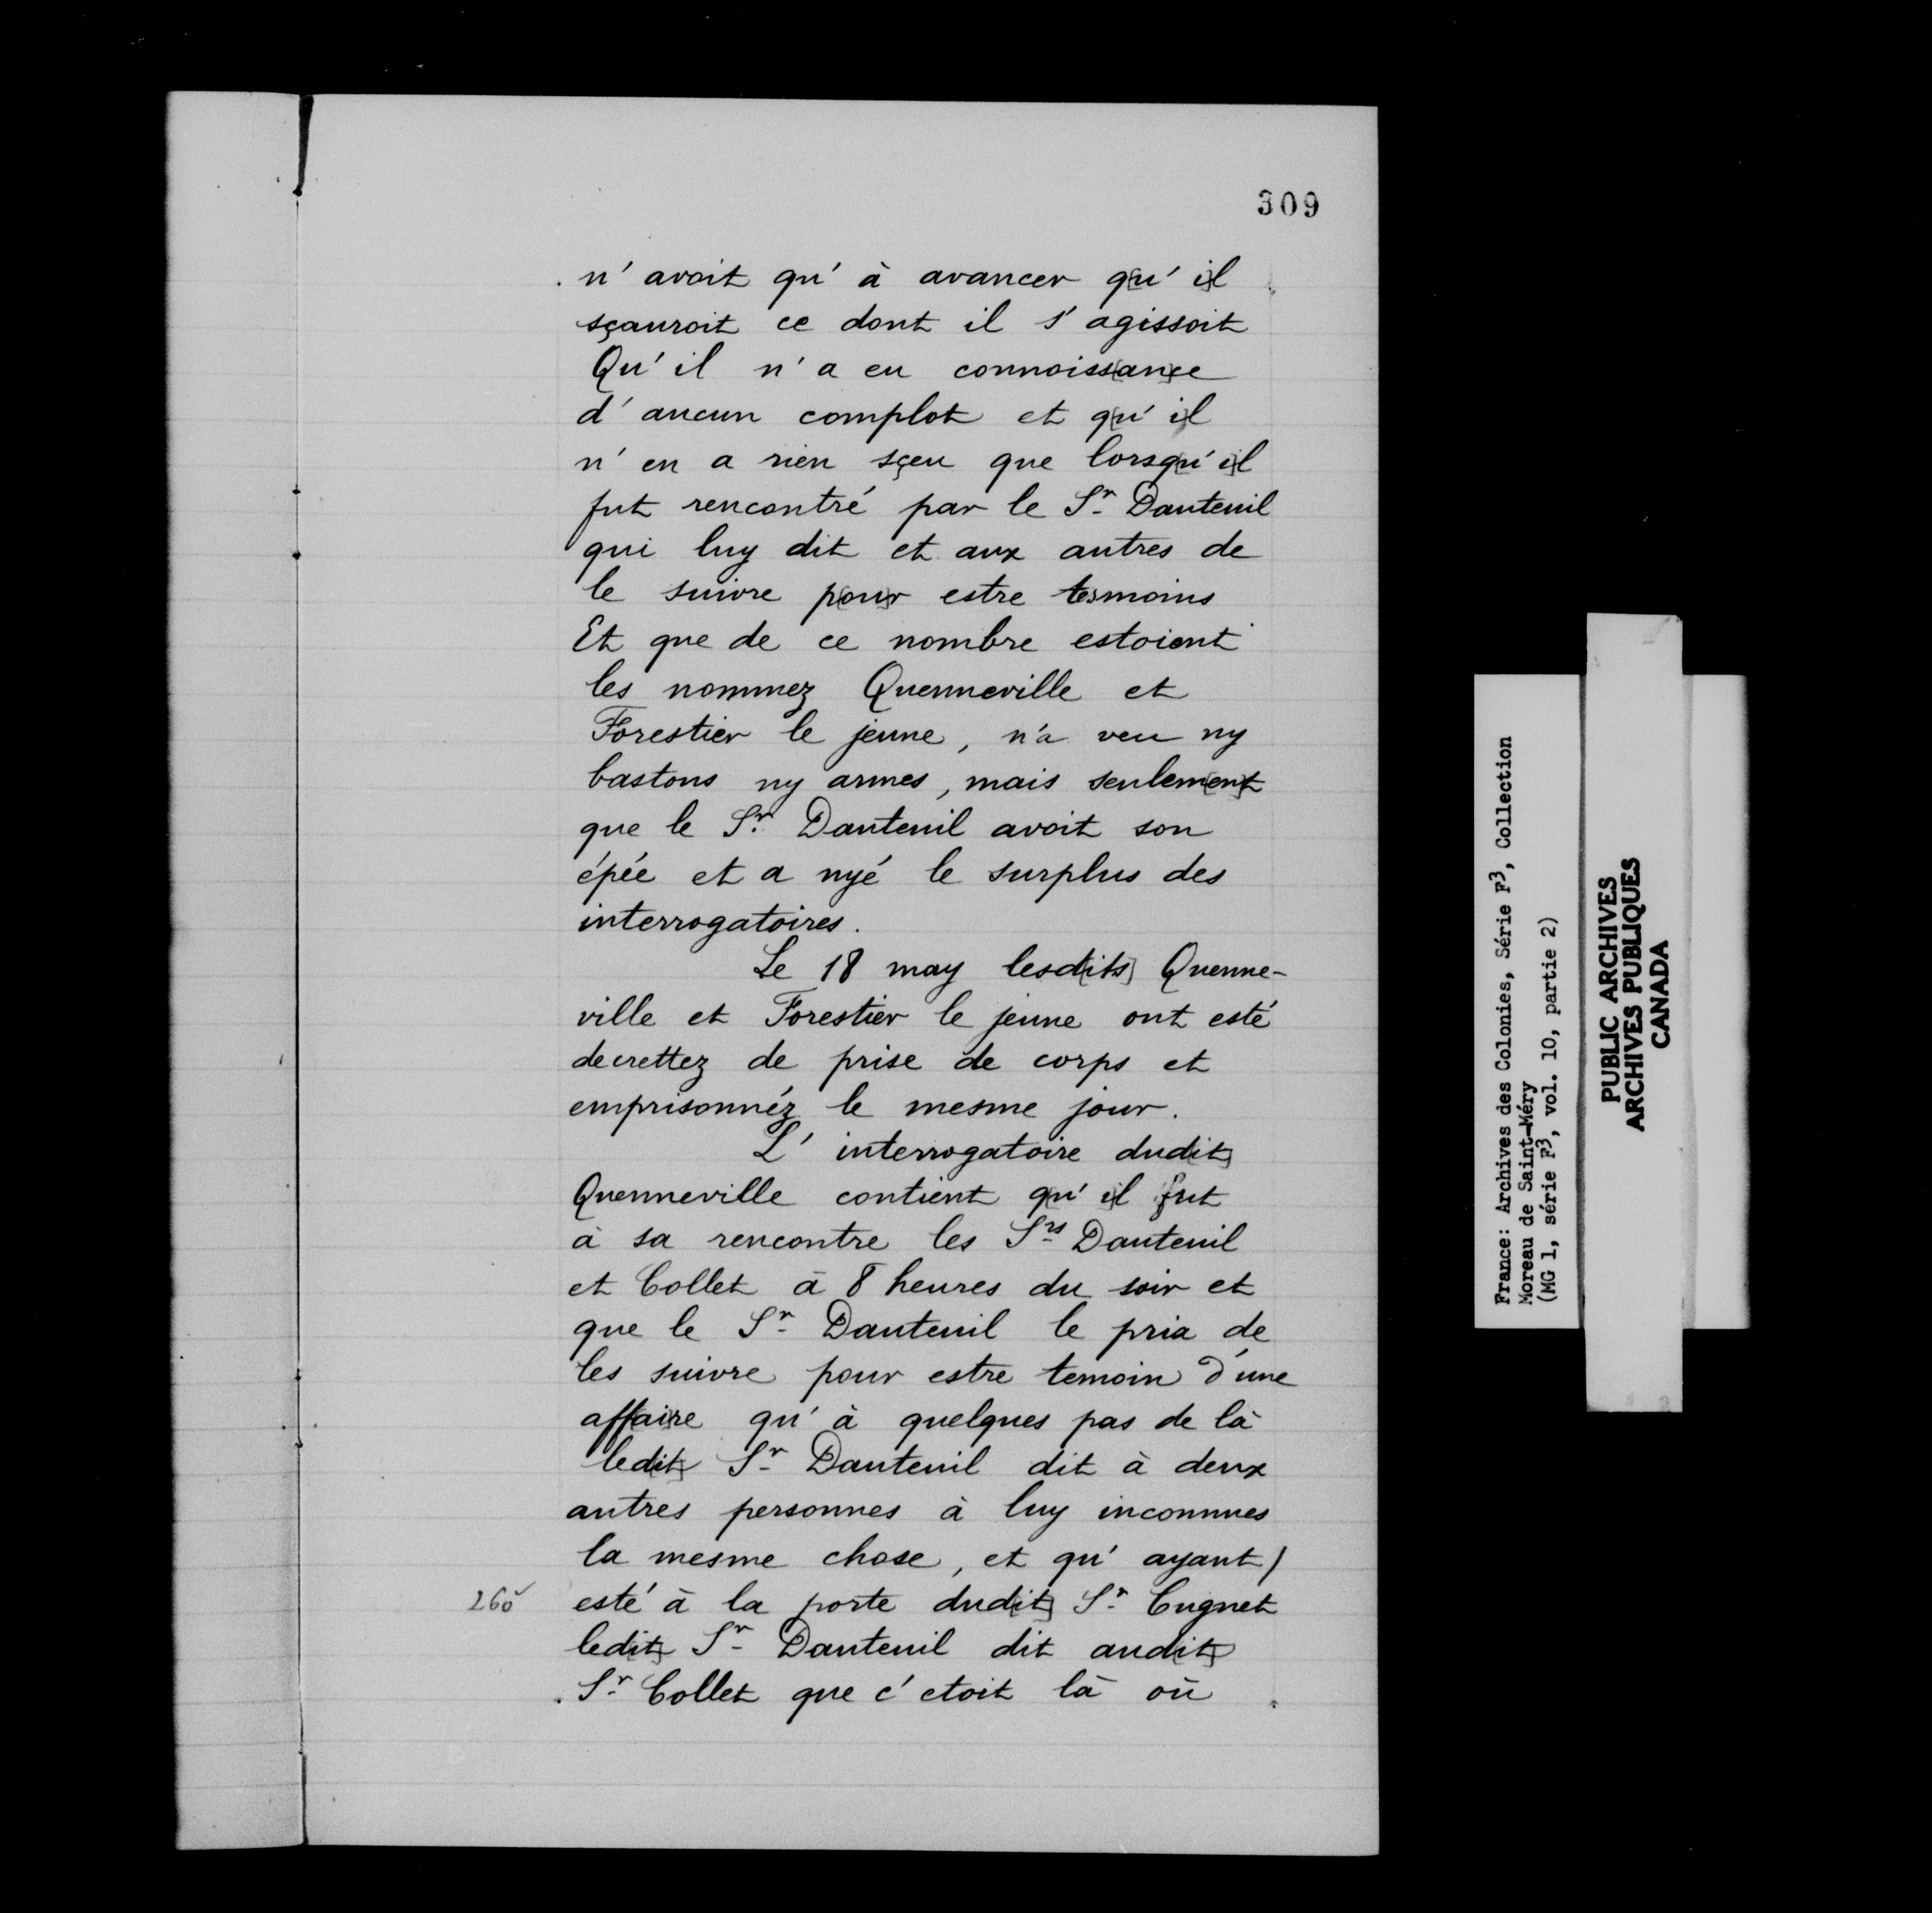 309
n' avoit qu' à avancer q[u' i]l
sçauroit ce dont il s' agissoit
Qu' il n' a eu connoiss[an]ce
d' aucun complot et q[u' i]l
n' en a rien sçeu que lorsq[u' i]l
fut rencontré par le Sr. Dauteuil
qui luy dit et aux autres de
le suivre p[ou]r estre tesmoins
Et que de ce nombre estoient
les nommez Quenneville et
Forestier le jeune, n'a veu ny
bastons ny armes, mais seulem[en]t
que le Sr. Dauteuil avoit son
épée et a nyé le surplus des
interrogatoires.
Le 18 may lesd[its] Quenne-
ville et Forestier le jeune ont esté
decrettez de prise de corps et
emprisonnéz le mesme jour.
L' interrogatoire dud[it]
Quenneville contient q[u' i]l fut
à sa rencontre les Srs. Dauteuil
et Collet à 8 heures du soir et
que le Sr. Dauteuil le pria de
les suivre pour estre temoin d'une
aff[ai]re qu' à quelques pas de là
led[it] Sr. Dauteuil dit à deux
autres personnes à luy inconnues
la mesme chose, et qu' ayant/
260v esté à la porte dud[it] Sr. Cugnet
led[it] Sr. Dauteuil dit aud[it]
Sr. Collet que c' etoit là où
France: Archives des Colonies, Série F3, Collection
Moreau de Saint-Méry
(MG 1, série F3, vol. 10, partie 2)
PUBLIC ARCHIVES
ARCHIVES PUBLIQUES
CANADA